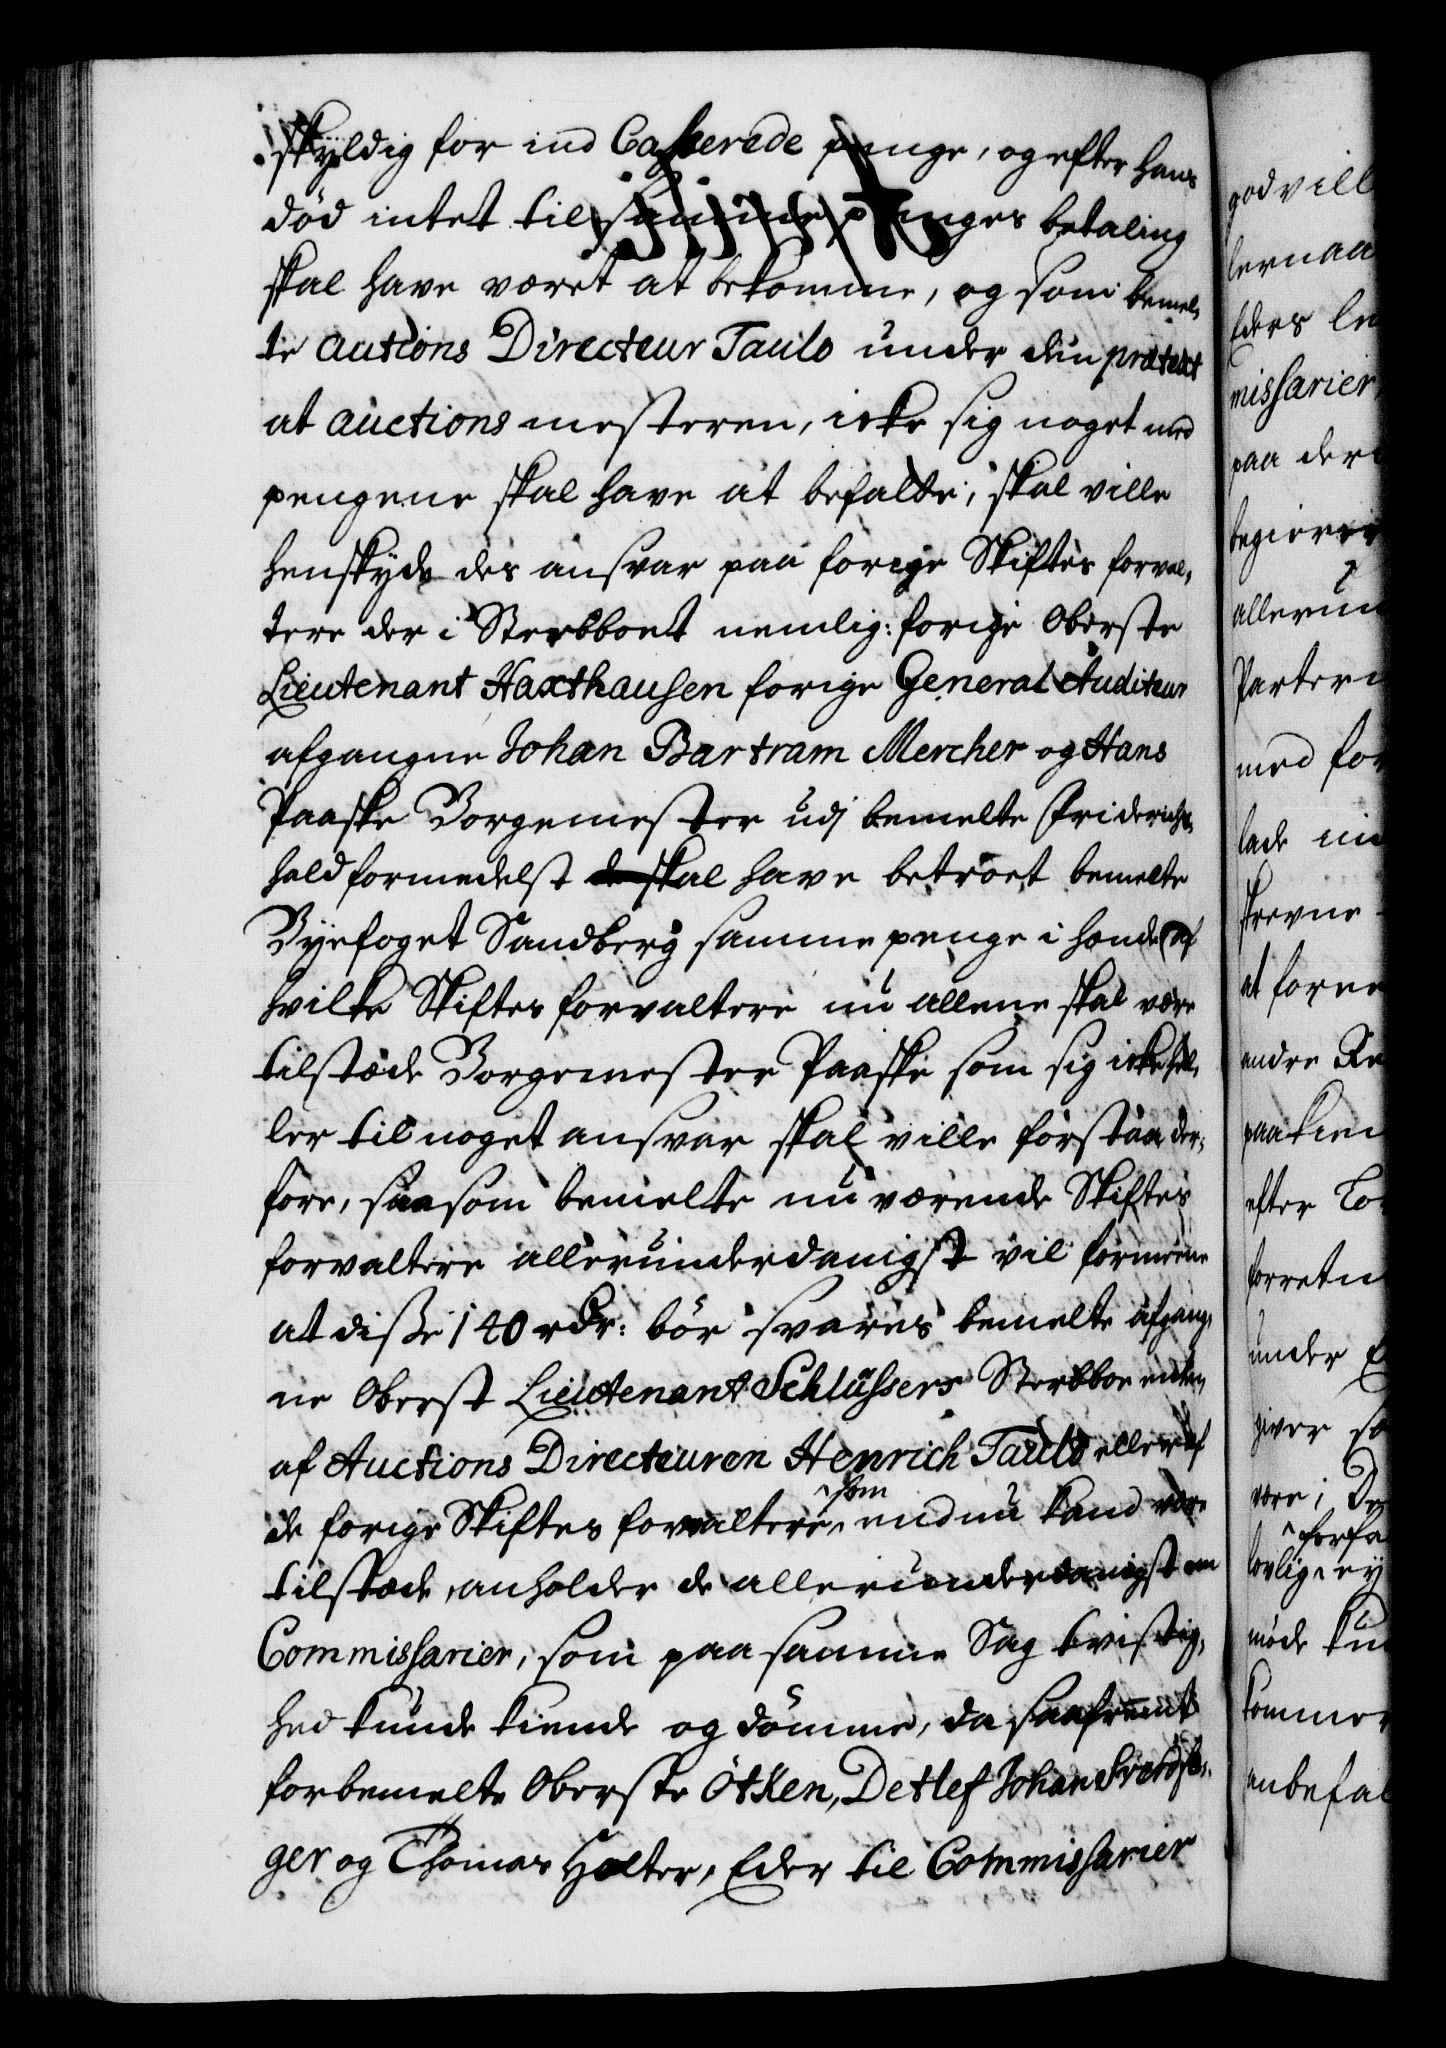 skyldig for ind Casserede penge, og efter hans
død intet til samme penges betaling
skal have været at bekomme, og som bemel,
te Auctions Directeur Taulo under den prætext
at auctions mesteren, icke sig noget med
pengene skal have at befatte, skal ville
henskyde des ansvar paa forige Skiftes forval,
tere der i Sterbboet nemlig: forige Oberste
Lieutenant Haxthausen forige General Auditeur
afgangne Johan Bartram Mercher og Hans
Paaske Borgemester udj bemelte Friderichs,
hald formedelst de skal have betroet bemelte
Byefoget Sandberg samme penge i hende af
hvilke Skiftes forvaltere nu allene skal være
tilstæde Borgemester Paaske som sig icke hel,
ler til noget ansvar skal ville forstaa der,
fore, saasom bemelte nu værende Skiftes
forvaltere allerunderdanigst vil formeene
at disse 140 rdr: bør svares bemelte afgang,
ne Oberst Lieutenant Schlüssers Sterbboe enten
af Auctions Directeuren Henrich Taulo eller af
de forige Skiftes forvaltere, som endnu kand være
tilstæde, anholder de allerunderdanigst om
Commissarier, som paa samme Sag tvistig,
hed kunde kiende og dømme, da saafremt
forbemelte Oberste Ötken, Detlef Johan
ger og Thomas Holter, Eder til Commissarier
godvill
lernaa
Eders
missarier,
paa der
begierer
allerun
Parter
med for
lade
skrevne
at forne
andre Re
paakien
efter Lo
forretn
under
giver sa
være i
forfa
lovlig, ey
møde kun
kommer
anbefal